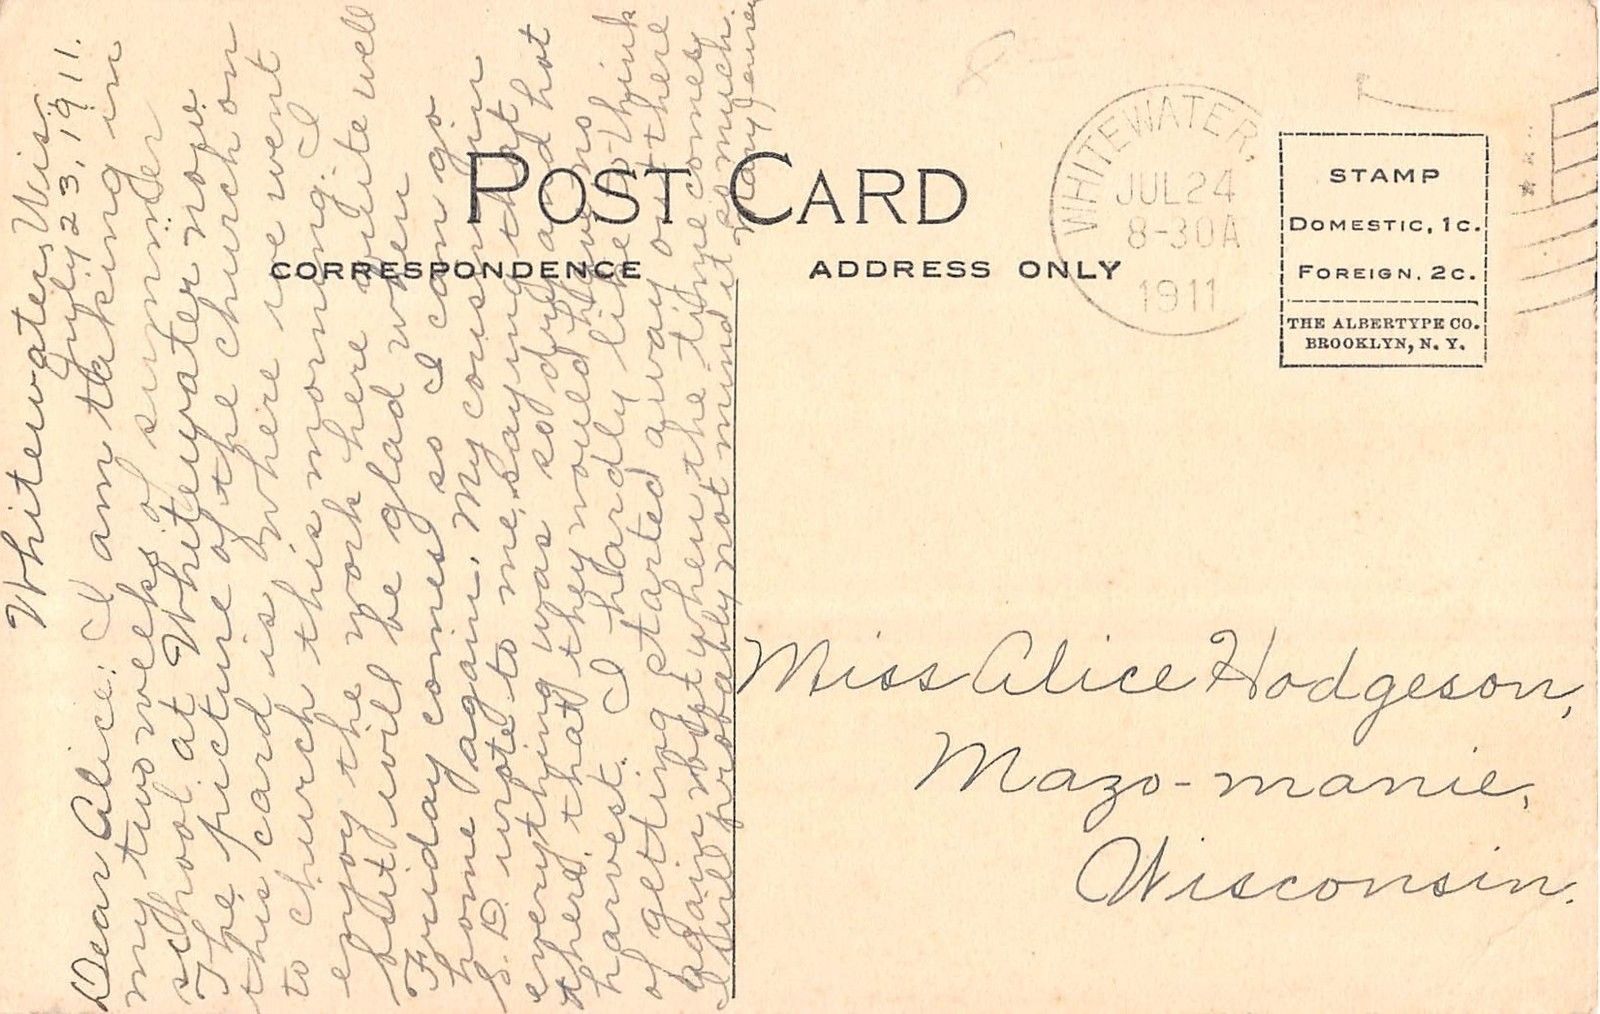 Whitewater, Wis.
July 23, 1911.
Dear Alice: I am taking in
my two weeks of summer
school at Whitewater now.
The picture of the church on
this card is where we went
to church this morning. I
enjoy the work here quite well
but will be glad when
Friday comes so I can go
home again. My cousin in
S. D. wrote to me, saying that
everything was so dry and hot
there, that they would have no
harvest. I hardly like to think
of getting started away out there
again but when the time comes
I will probably not mind it so much.
Mary
POST CARD
CORRESPONDENCE
ADDRESS ONLY
WHITEWATER.
JUL 24
8-30A
1911
STAMP
DOMESTIC, 1c.
FOREIGN, 2c.
THE ALBERTYPE CO.
BROOKLYN, N. Y.
Miss Alice Hodgeson,
Mazo-manie,
Wisconsin.